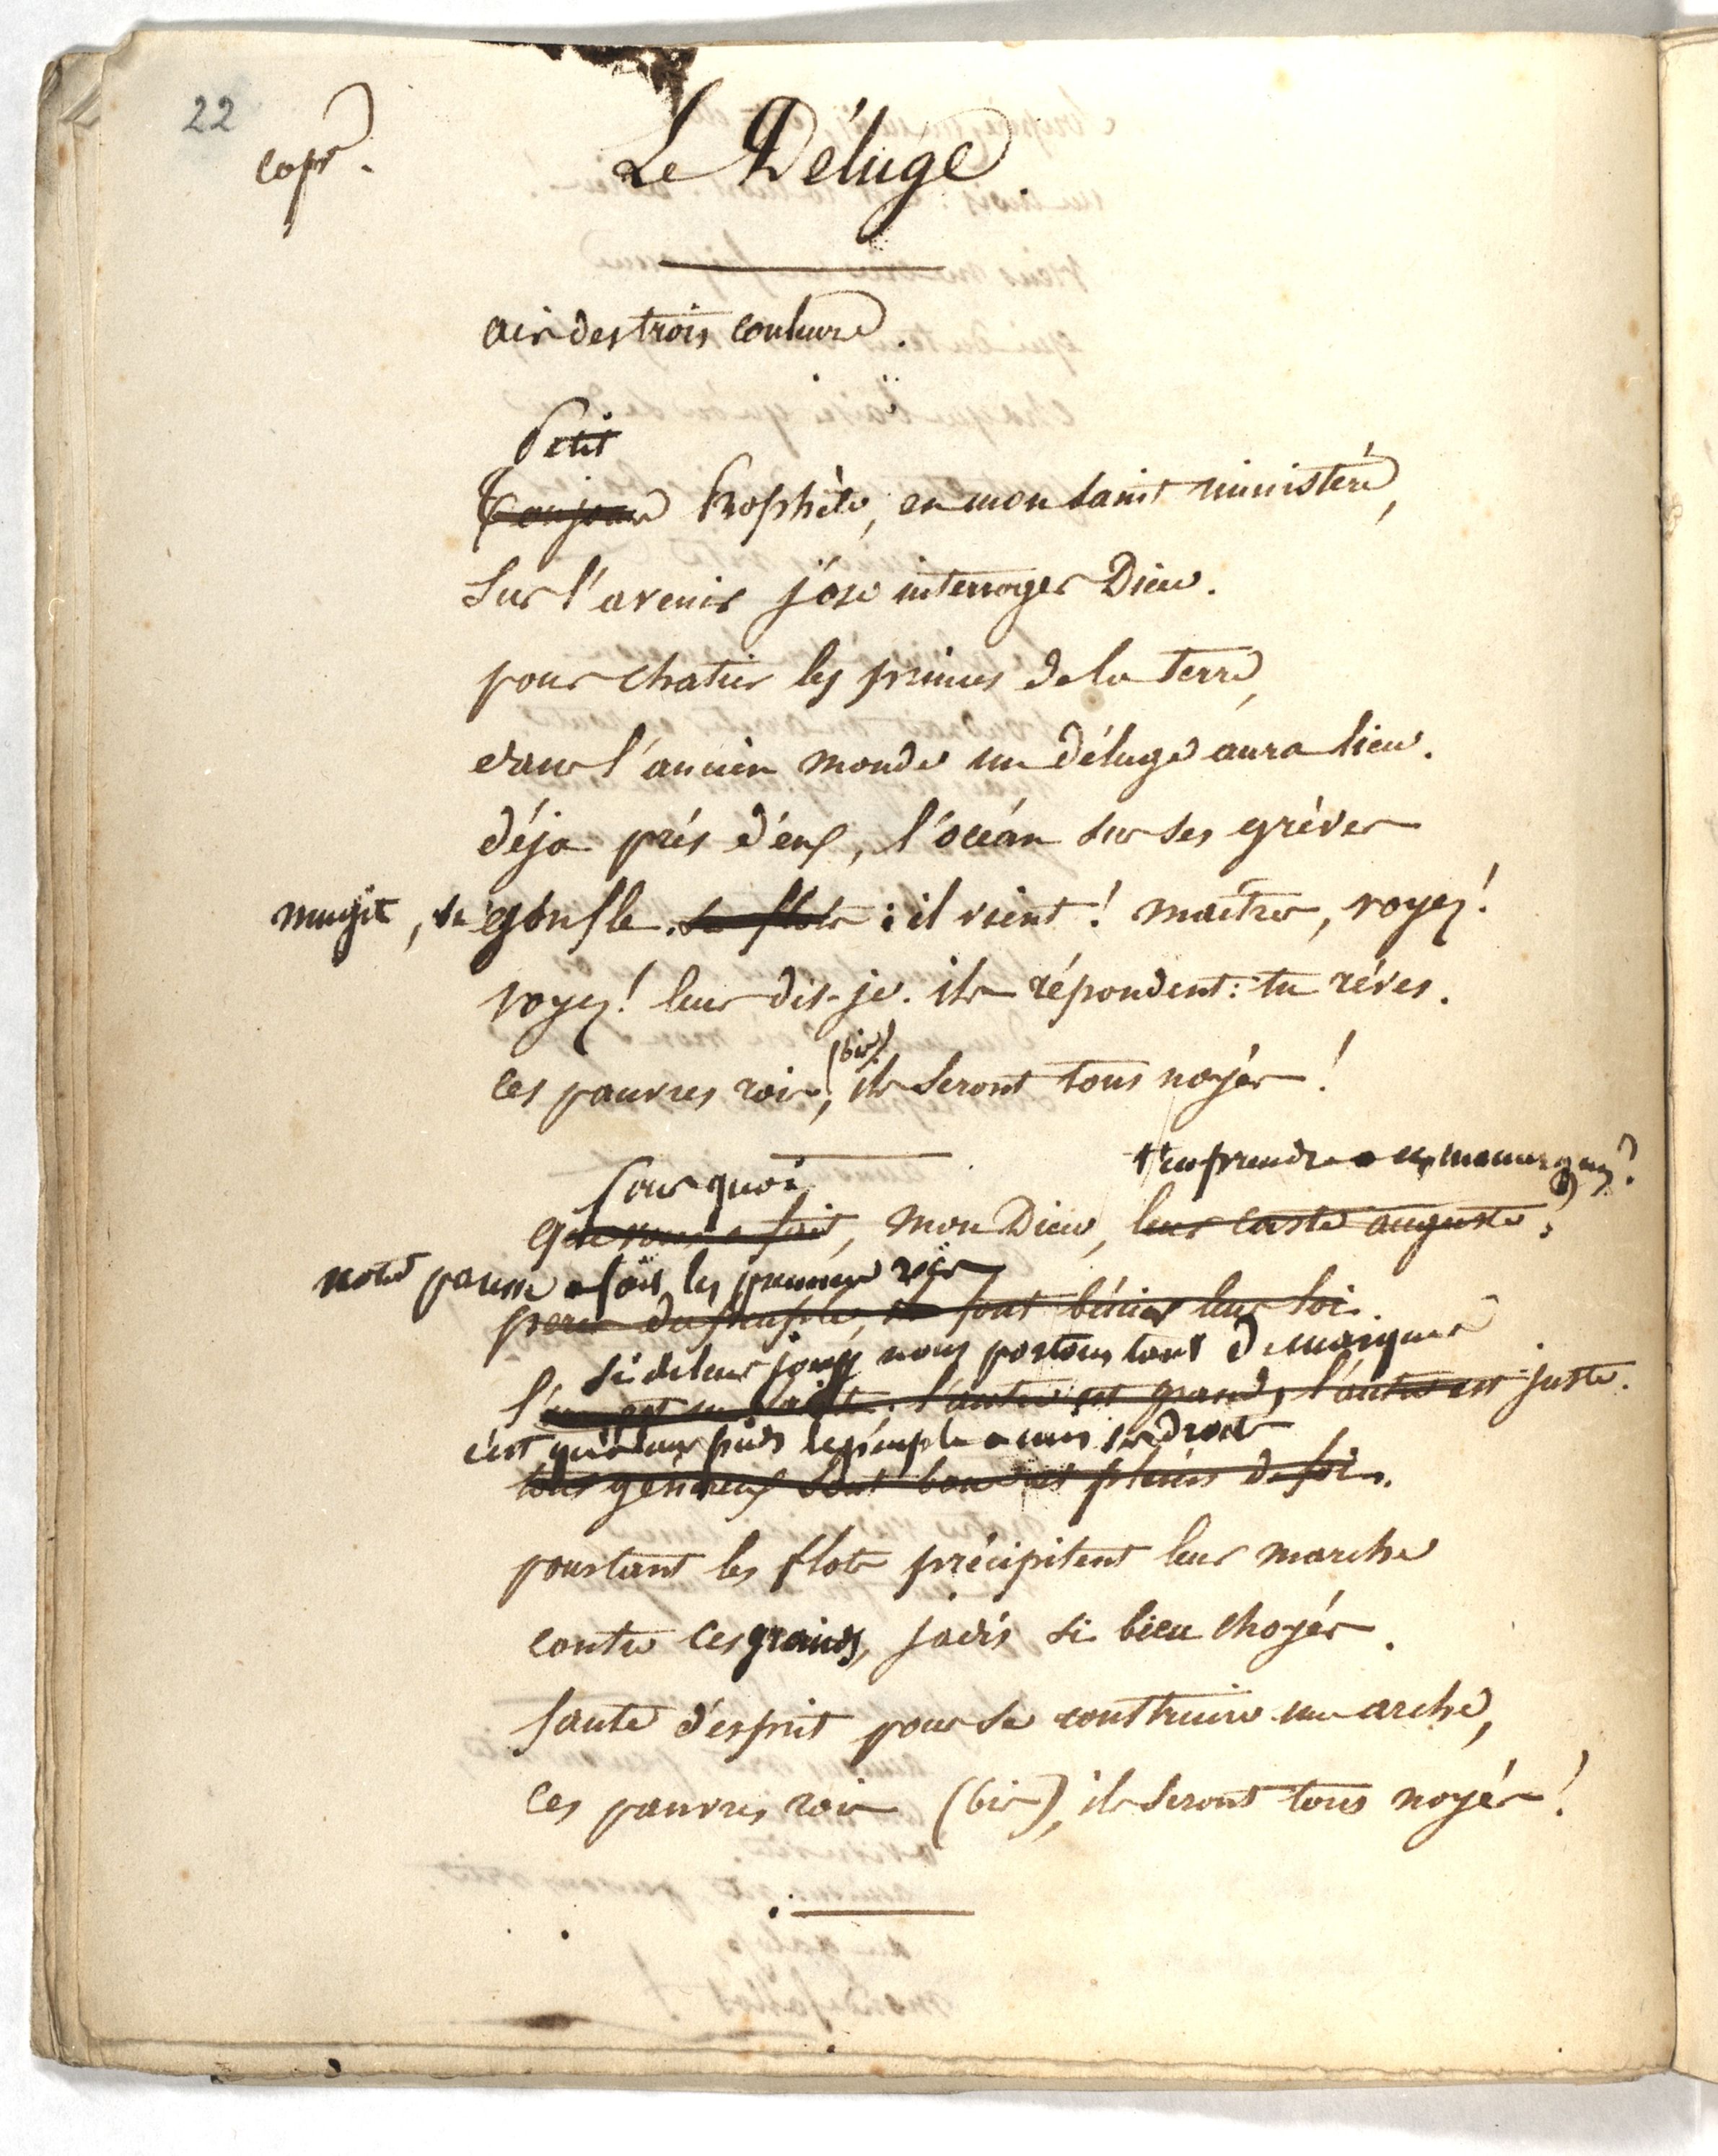 22
copié.
Le Déluge
air des trois couleurs.
Petit
Toujours Prophète, en mon saint ministère,
Sur l'avenir j'ose interroger Dieu.
pour chatier les princes de la terre,
dans l'ancien monde un déluge aura lieu.
déja près d'eux, l'océan sur ses grèves
mugit, se gonfle. ses flots : il vient! maîtres, voyez!
voyez! leur dis-je. ils répondent: tu rêves.
(bis)
ces pauvres rois, ils seront tous noyés!
t'en prendre à ces monarques?
Pourquoi
Que vous a fait, mon Dieu, leur caste auguste?
notre paresse a fait les premiers rois
peres du peuple, ils font bénir leur loi.
si de leur joug nous portons tant de marques
l'un est un saint; l'autre est grand, l'autre est juste.
c'est qu'à leurs pieds le peuple a mis ses droits
tous généreux sont bons et pleins de foi.
pourtant les flots précipitent leur marche
contre ces grands, jadis si bien choyés.
faute d'esprit pour se construire une arche,
ces pauvres rois (bis), ils seront tous noyés!